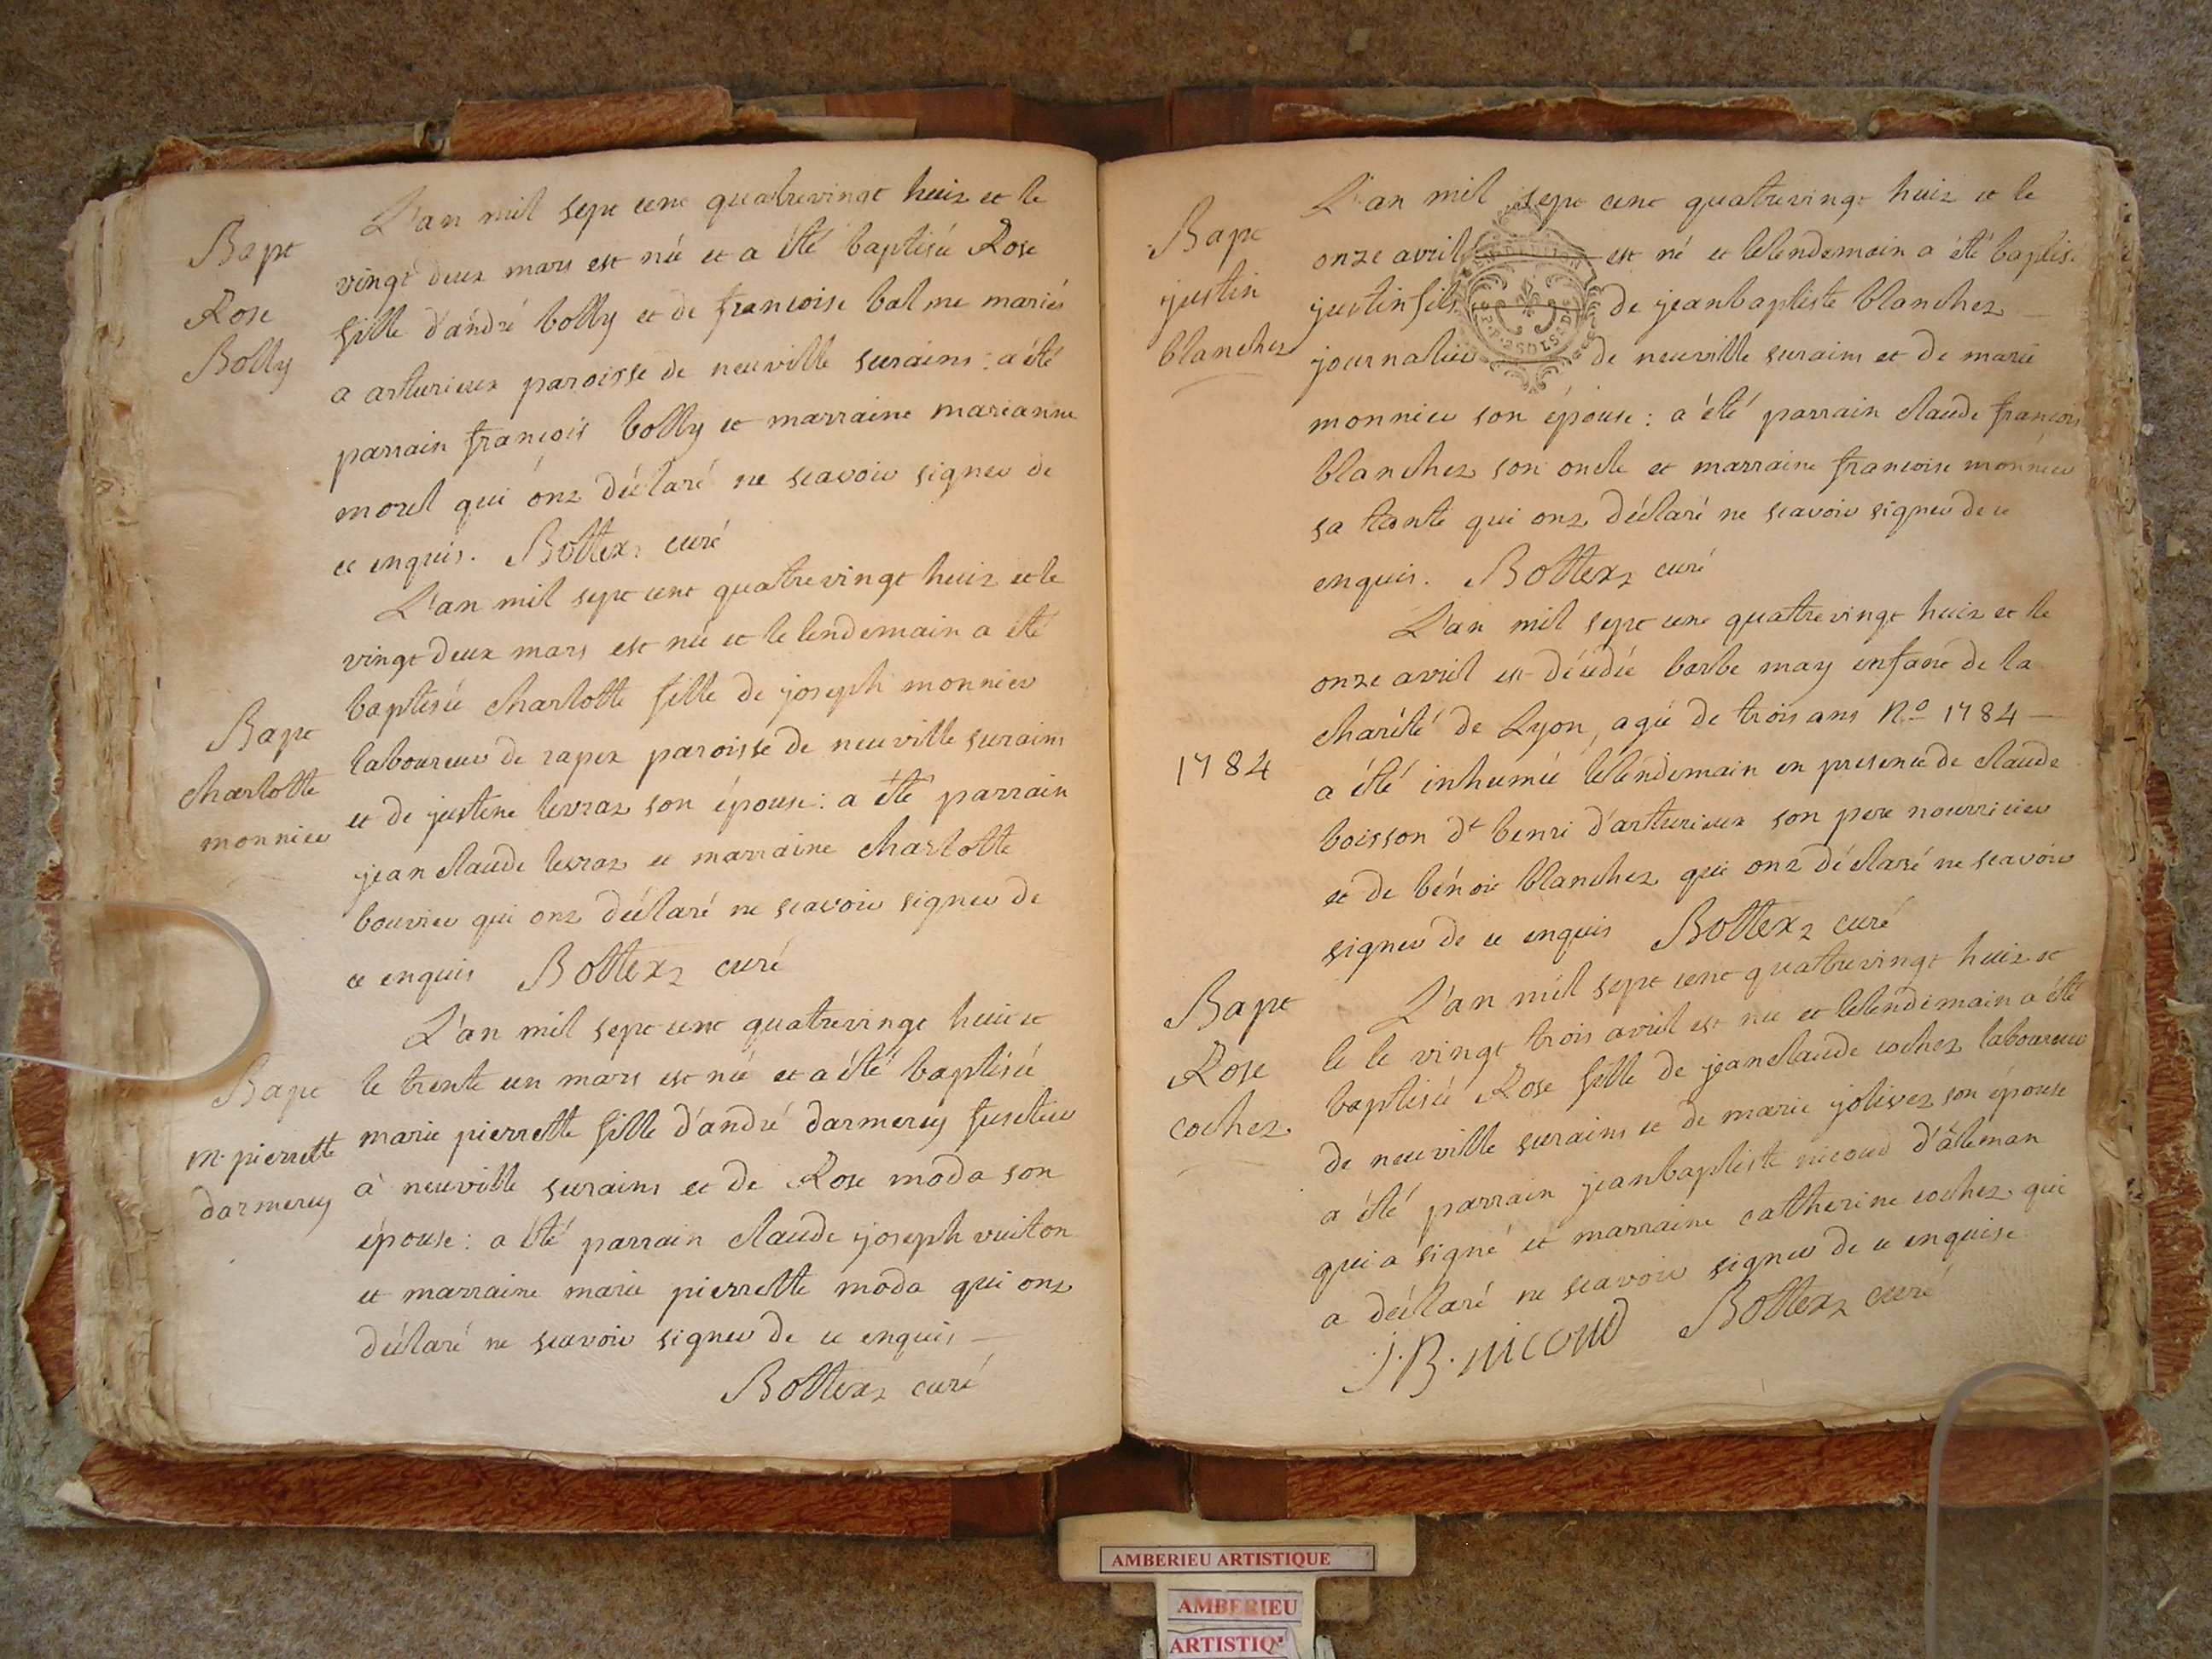 Bapt
Rose
Bolly
L'an mil sept cent quatrevingt huit et le
vingt deux mars est née et a été baptisée Rose
fille d'andré bolly et de francoise balme mariés
a arturieux paroisse de neuville surains : a été
parrain françois bolly et marraine marianne
morel qui ont déclaré ne scavoir signer de
ce enquis. Bottex curé
Bapt
charlotte
monnier
L'an mil sept cent quatrevingt huit et le
vingt deux mars est née et le lendemain a été
baptisée charlotte fille de joseph monnier
laboureur de rapex paroisse de neuville surains
et de justine levrat son épouse : a été parrain
jean claude levrat et marraine charlotte
bouvier qui ont déclaré ne scavoir signer de
ce enquis Bottex curé
Bapt
m. pierrette
darmerey
L'an mil sept cent quatrevingt huit et
le trente un mars est née et a été baptisée
marie pierrette fille d'andré darmerey
à neuville surains et de Rose moda son
épouse : a été parrain claude joseph vuiton
et marraine marie pierrette moda qui ont
déclaré ne scavoir signer de ce enquis
Bottex curé
Bapt
justin
blanchet
L'an mil sept cent quatrevingt huit et le
onze avril est né et le lendemain a été baptisé
justin fils de jeanbaptiste blanchet
journalier de neuville surains et de marie
monnier son épouse : a été parrain claude françois
blanchet son oncle et marraine francoise monnier
sa tante qui ont déclaré ne scavoir signer de ce
enquis. Bottex curé
1784
L'an mil sept cent quatrevingt huit et le
onze avril est décédée barbe may enfant de la
charité de Lyon, agée de trois ans No 1784
a été inhumée le lendemain en presence de claude
boisson dt benri d'arturieux son pere nourricier
et de bénoit blanchet qui ont déclaré ne scavoir
signer de ce enquis Bottex curé
Bapt
Rose
cochet
L'an mil sept cent quatrevingt huit et
le le vingt trois avril est née et le lendemain a été
baptisée Rose fille de jeanclaude cochet laboureur
de neuville surains et de marie jolivet son épouse
a été parrain jeanbaptiste nicoud d'âleman
qui a signé et marraine catherine cochet qui
a déclaré ne scavoir signer de ce enquise
J. B. nicoud Bottex curé
AMBERIEU ARTISTIQUE
AMBERIEU
ARTISTIQ